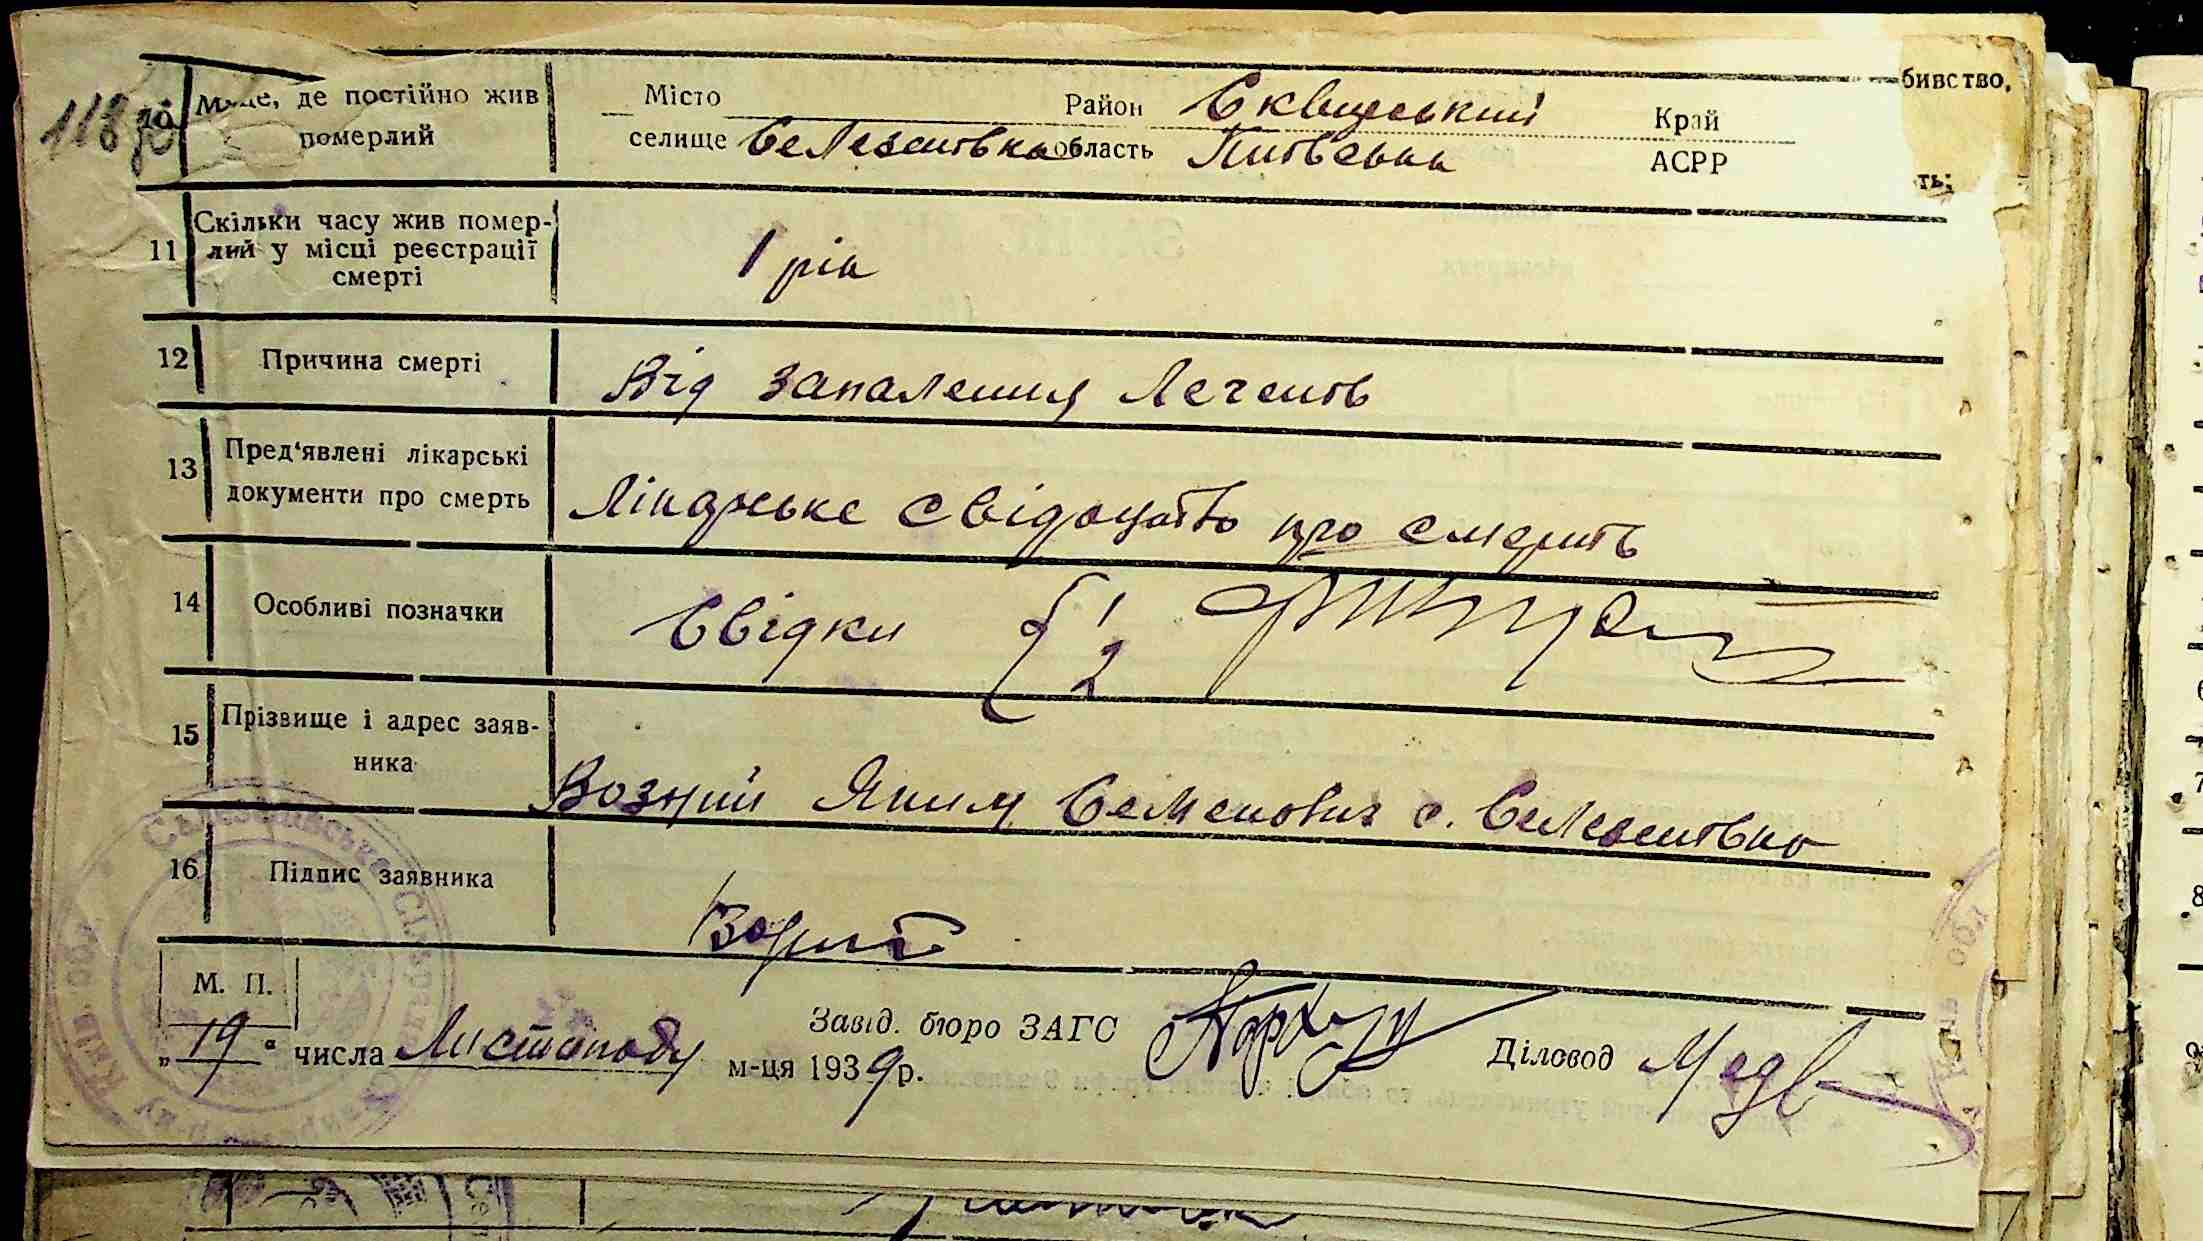 118
бивство,
10 Місце, де постійно жив Місто Район Сквирський Край
померлий селище Селезенівка область Київська АСРР
ть;
Скільки часу жив помер-
11 лий у місці реєстрації 1 рік
смерті
12 Причина смерті Від запалення легенів
13 Пред'явлені лікарські
документи про смерть Лікарське свідоцтво про смерть
14 Особливі позначки Свідки { 1 2
15 Прізвище і адрес заяв-
ника Возний Яким Семенович с. Селезенівка
16 Підпис заявника Возний
М. П.
„19“ числа Листопаду м-ця 1939 р. Завід. бюро ЗАГС Діловод